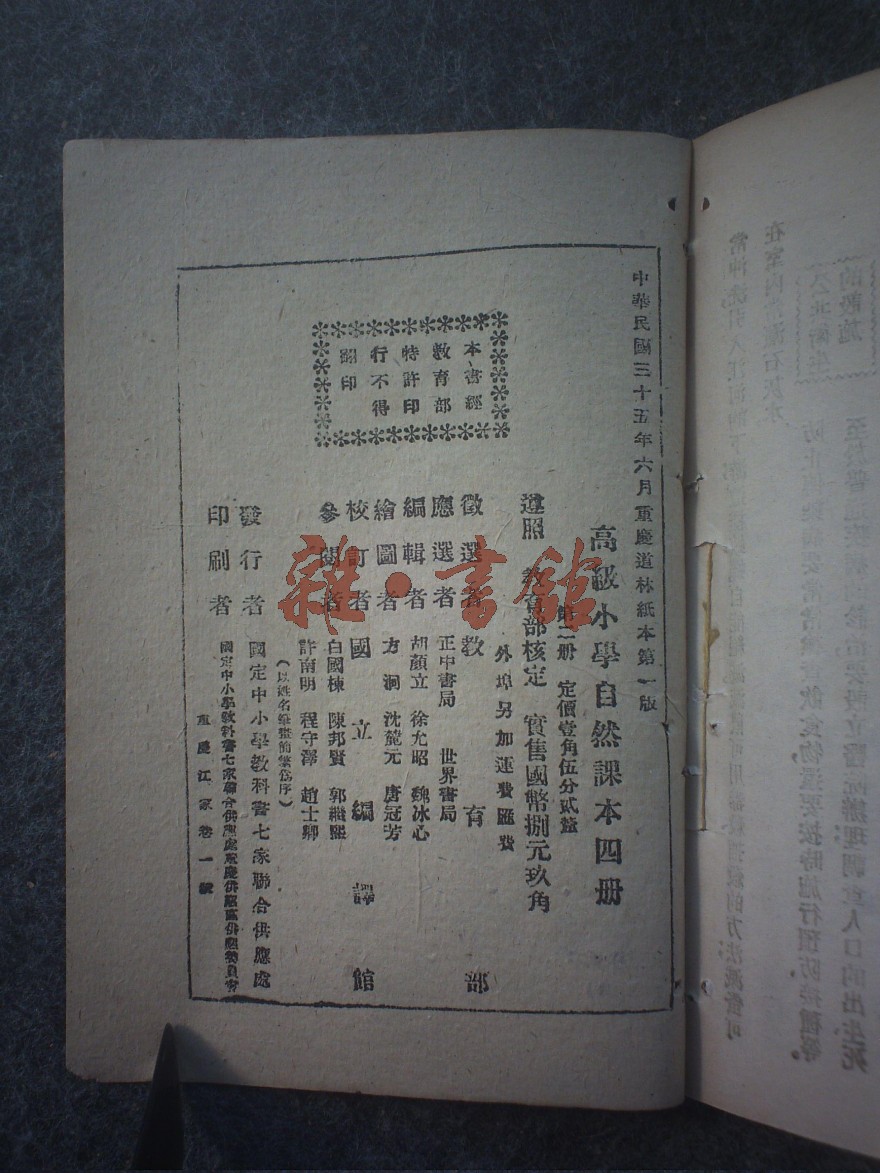 中華民國三十五年六月重慶道林紙本第一版
高級小學自然課本四册
第二册 定價壹角伍分貳釐
遵照 教育部核定 實售國幣捌元玖角
外埠另加運費匯費
本書經
教育部
特許印
行不得
翻印
徵選者 教育部
應選者 正中書局 世界書局
編輯者 胡顏立 徐允昭 魏冰心
繪圖者 方洞 沈麓元 唐冠芳
校訂者 國立編譯館
參閱者 白國棟 陳邦賢 郭繼熙
許南明 程守澤 趙士卿
(以姓名筆畫簡繁爲序)
發行者 國定中小學教科書七家聯合供應處
印刷者 國定中小學教科書七家聯合供應處重慶供應區供應委員會
重慶江家巷一號
雜·書館
的設施
在室內
石灰水
飲食物,還要按時施行預防接種等,
辦理調查人口的出生死